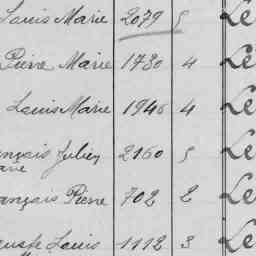 Louis Marie 2079 5 Le
Pierre Marie 1730 4 Le
Louis Marie 1946 4 Le
ançois Julien 2160 5 Le
ançois Pierre 702 2 Le
guste Louis 1112 3 Le